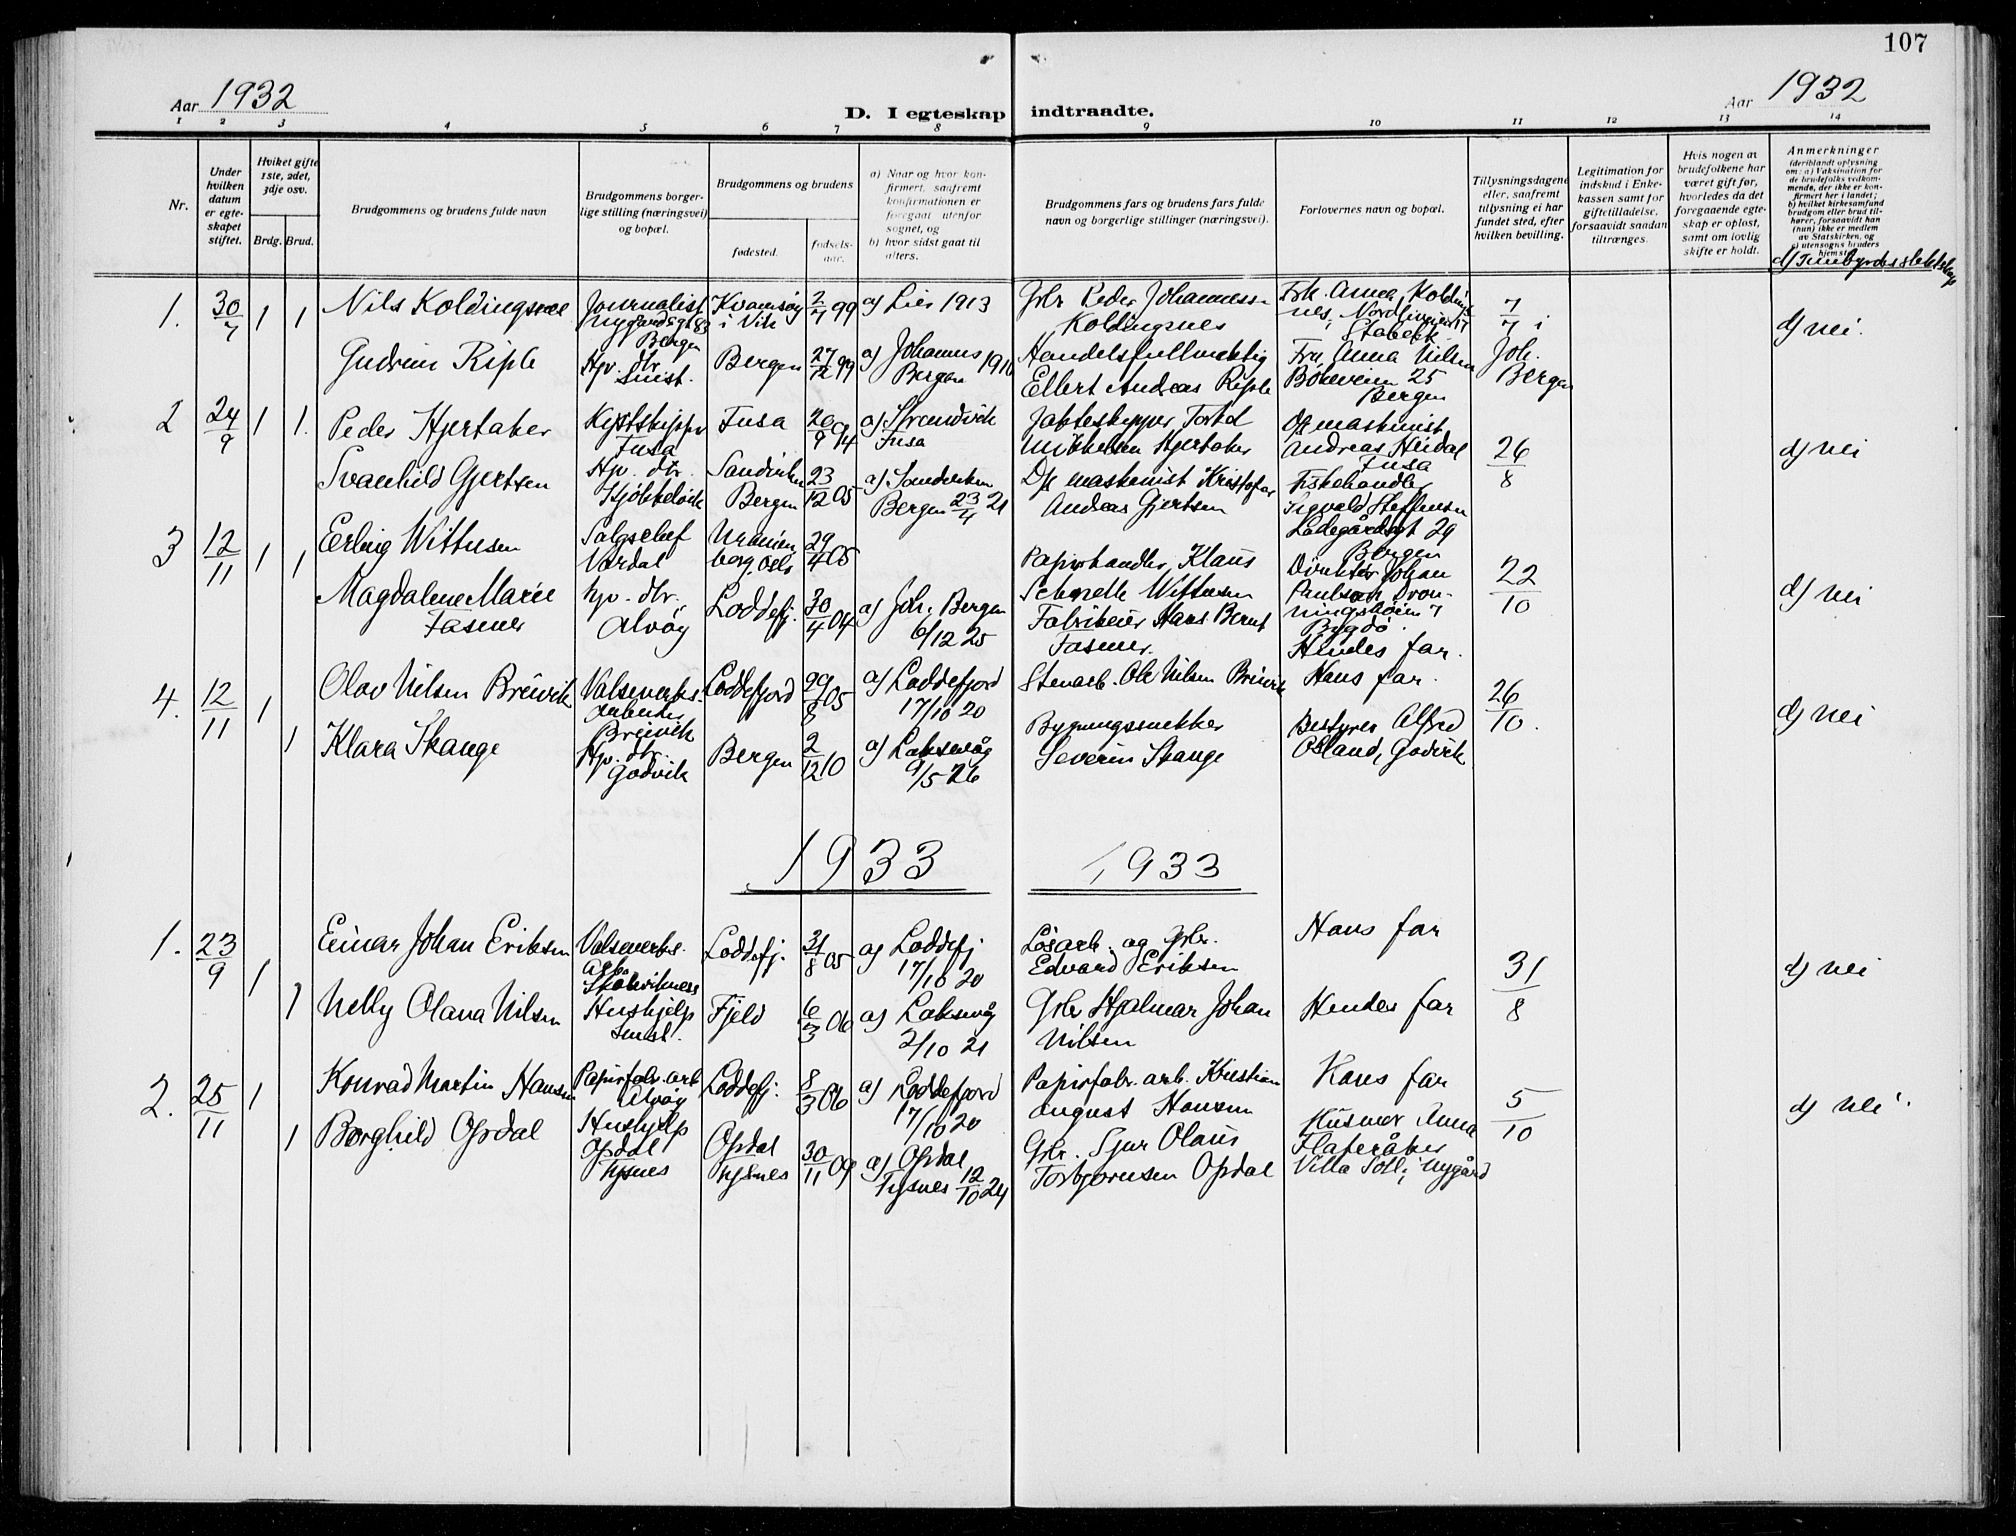 107
Aar 1932
D. I egteskap indtraadte.
Aar 1932
1 2 3 4 5 6 7 8 9 10 11 12 13 14
Nr.
Under hvilken datum er egteskapet stiftet.
Hvilket gifte 1ste, 2det, 3dje osv.
Brdg. Brud.
Brudgommens og brudens fulde navn
Brudgommens borgerlige stilling (næringsvei) og bopæl.
Brudgommens og brudens
fødested. fødselsaar.
a) Naar og hvor konfirmert, saafremt konfirmationen er foregaat utenfor sognet, og
b) hvor sidst gaat til alters.
Brudgommens fars og brudens fars fulde navn og borgerlige stillinger (næringsvei).
Forlovernes navn og bopæl.
Tillysningsdagene eller, saafremt tillysning ei har fundet sted, efter hvilken bevilling.
Legitimation for indskud i Enkekassen samt for giftetilladelse, forsaavidt saadan tiltrænges.
Hvis nogen av brudefolkene har været gift før, hvorledes da det foregaaende egteskap er opløst, samt om lovlig skifte er holdt.
Anmerkninger
(deriblandt oplysning om: a) Vaksination for de brudefolks vedkommende, der ikke er konfirmert her i landet; b) hvilket kirkesamfund brudgom eller brud tilhører, forsaavidt han (hun) ikke er medlem av Statskirken, og c) utensogns bruders hjemsted
1. 30/7 1 1 Nils Koldingsnes
Journalist Nygårdsgt 83 Bergen
Kvamsøy i Vik 2/7 99 a) Lier 1913
Grbr Peder Johannessen Koldingsnes
Frk. Anna Koldingsnes, Stabekk
7/7 i Joh. Bergen
d) nei.
Gudrun Riple
Hp. dtr. Bergen 27/12 99 a) Johannes Bergen
Handelsfullmektig Ellert Andreas Riple
Fru Anna Nilsen Bøheveien 25 Bergen
2 24/9 1 1. Peder Hjertaker
Fusa
Fusa 20/9 94 a) Strandvik Fusa
Mikkelsen Hjertaker
maskinist Andreas Heidal Fusa
26/8
d) nei
Svanhild Gjertsen
Hp. dtr.
Sandviken Bergen 23/12 05 a) Sandviken Bergen 23/4 21
maskinist Kristofer Andreas Gjertsen
Fiskehandler Sigvald Steffensen Ladegårdsgt 29 Bergen
3 12/11 1 1 Erling Wittusen
Salgschef
Uranienborg, Oslo 29/4 05
Papirhandler Klaus Wittusen
Direktør Johan Paulson Dronningshøien 7 Bygdø.
22/10
d) nei
Magdalene Marie Fasmer
hp. dtr. Alvøy
Loddefj. 30/4 04 a) Joh. Bergen 6/12 25
Fabrikeier Hans Bernt Fasmer.
Hendes far.
4. 12/11 1 Olav Nilsen Breivik
Valseverks-arbeider Breivik
Loddefjord 29/8 05 a) Loddefjord 17/10 20
Stenarb. Ole Nilsen Breivik
Hans far.
26/10.
d) nei
1 Klara Skauge
Hp. dtr. Godvik
Bergen 2/12 10 a) Laksevåg 9/5 26
Bygningssnekker Severin Skauge
Bestyrer Alfred Osland, Godvik
1933
1933
1. 23/9 1 Einar Johan Eriksen
Valseverks. Arb.
Loddefj. 31/8 05 a) Loddefj 17/10 20
Løsarb. og Grbr. Edvard Eriksen
Hans far
31/8
d) nei
1 Nelly Olava Nilsen
Hushjelp
Fjeld 6/3 06 a) Laksevåg 2/10 21
Grbr Hjalmar Johan Nilsen
Hendes far
2. 25/11 1 Konrad Martin Hansen
Papirfabr. arb Alvøy
Loddefj. 8/3 06 a) Loddefjord 17/10 20
Papirfabr. arb. Kristian August Hansen
Hans far
5/10
d) nei.
1 Borghild Opdal
Hushjelp Opdal Tysnes
Opdal Tysnes 30/11 09 a) Opdal Tysnes 12/10 24
Grbr. Sjur Olaus Torbjørnsen Opdal
Husmor Anna Flateråker Villa Soli, Nygård